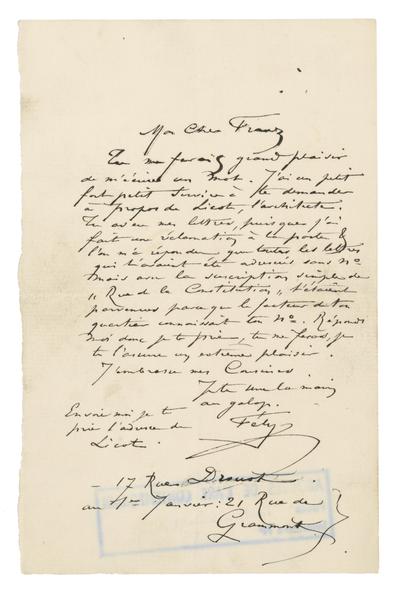 Mon Cher Franz
Tu me ferais grand plaisir
de m'écrire un mot. J'ai un petit
fort petit service à te demander
à propos de Licot, l'architecte.
Tu as eu mes lettres, puisque j'ai
fait une réclamation à la poste &
l'on m'a répondu que toutes les lettres
qui t'avaient été adressées sans No
mais avec la suscription simple de
"Rue de la Constitution", t'étaient
parvenues parce que le facteur de ton
quartier connaissait ton No. Réponds
moi donc je te prie, tu me feras, je
te l'assure un extrême plaisir.
J'embrasse mes Cousines.
Je te serre la main
au galop.
Envoie moi je te
prie l'adresse de
Licot.
Fély
- 17 Rue Drouot.
au 1er Janvier: 21 Rue de
Grammont